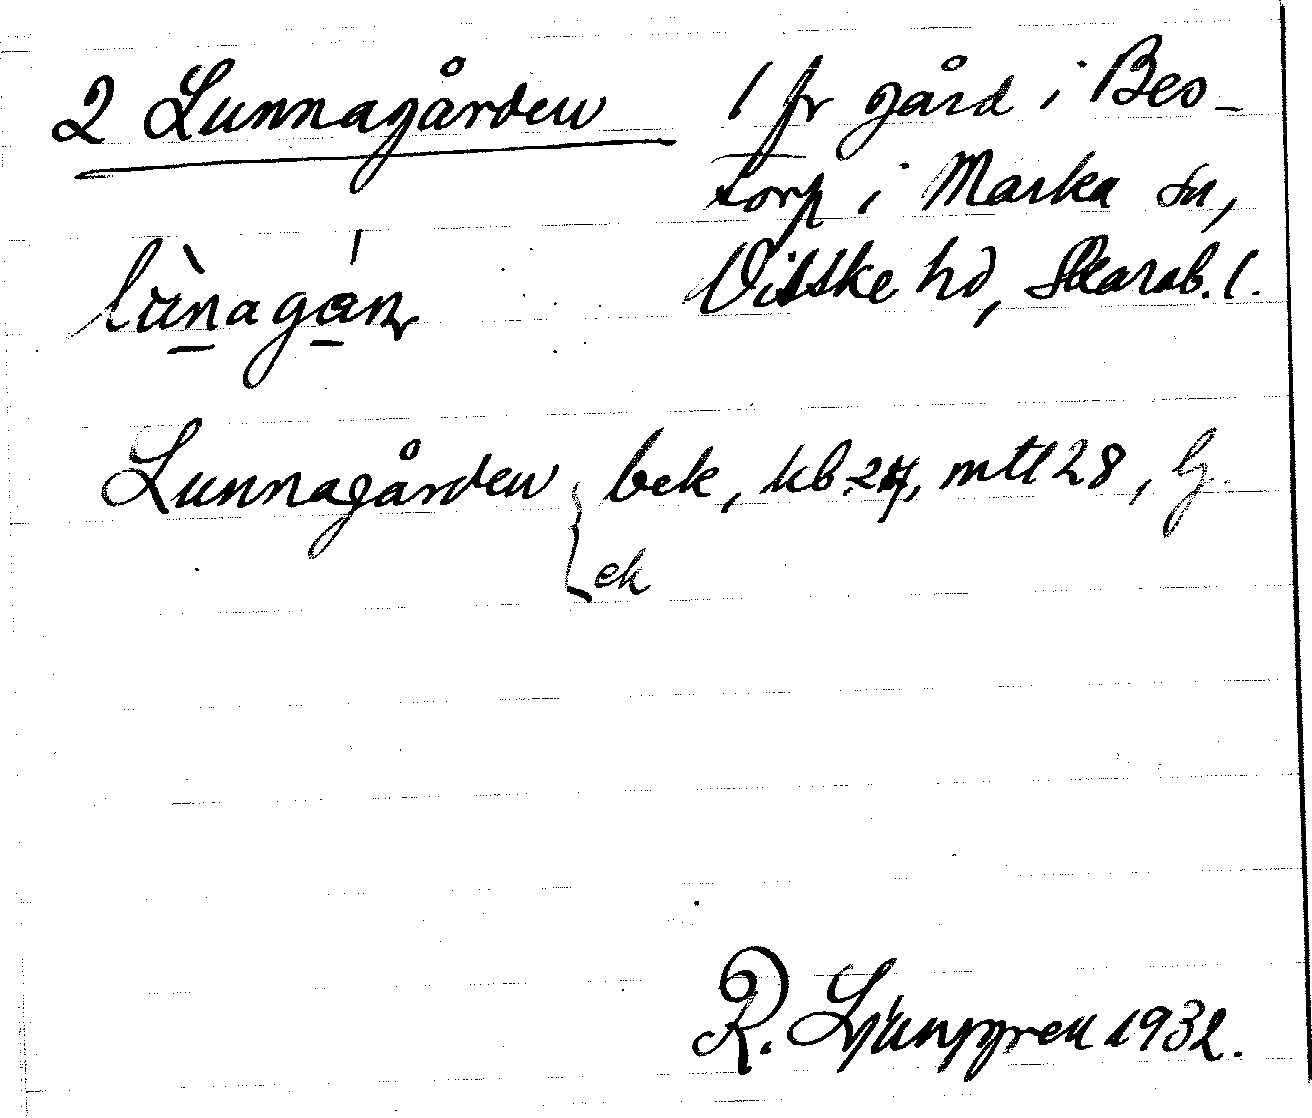 2 Lunnagården
1 fr gård i Beo-
torp i Marka sn,
Vilske hd, Skarab. l.
Lunnagården { bek, kb. 24, mtl 28, Lj.
ek
R. Ljunggren 1932.